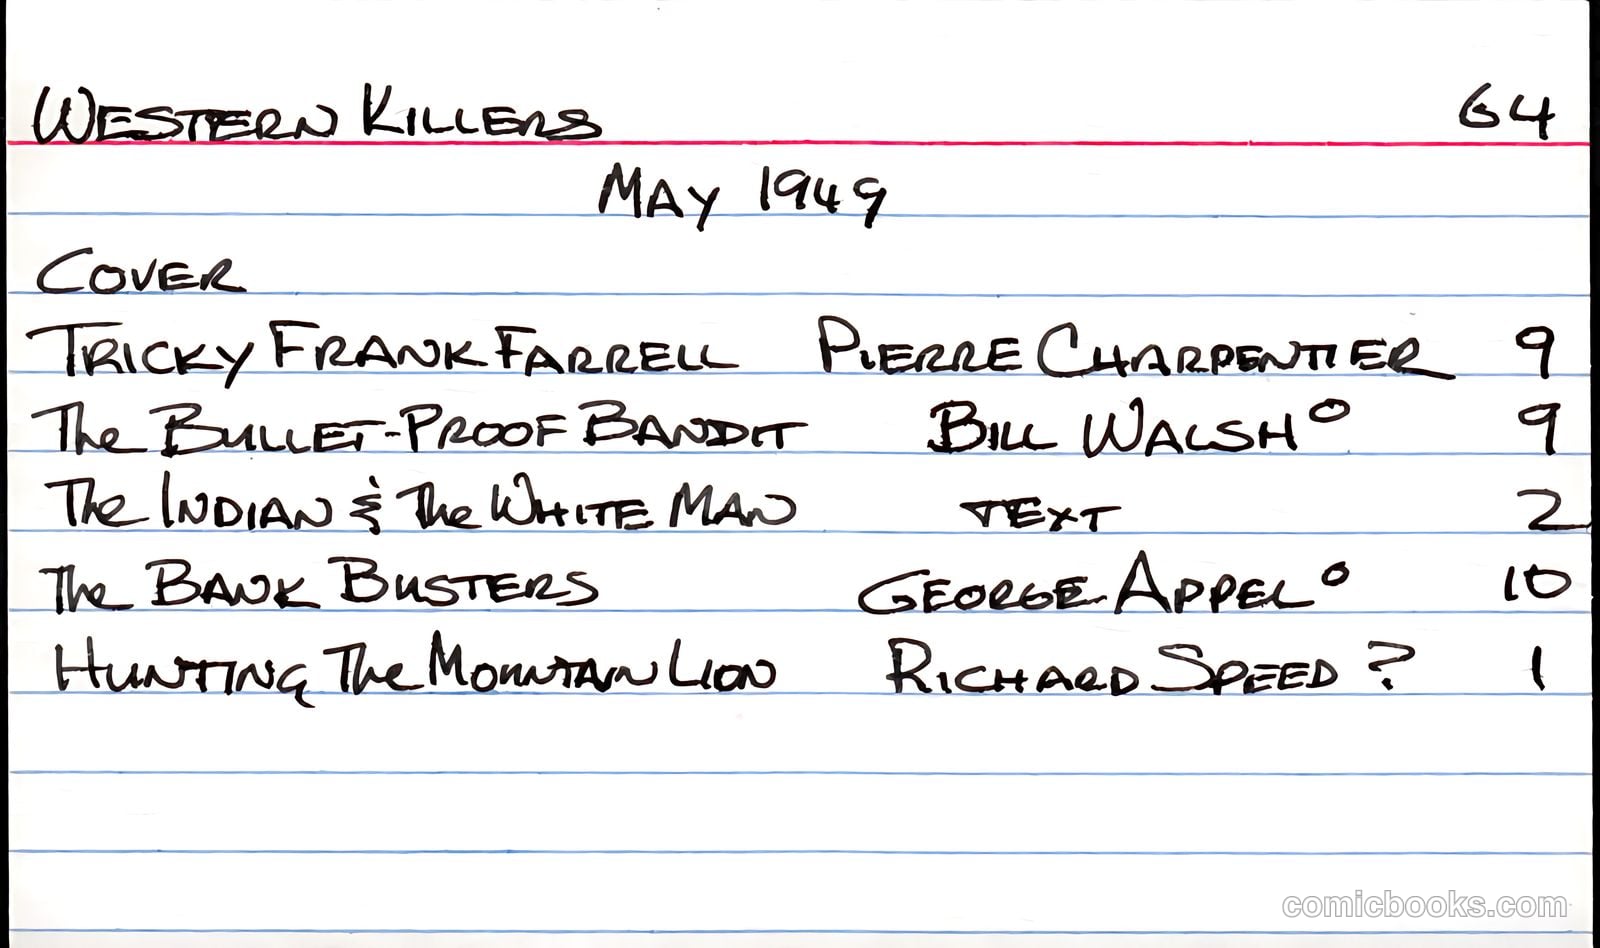 WESTERN KILLERS 64
MAY 1949
COVER
TRICKY FRANK FARRELL PIERRE CHARPENTIER 9
The BULLET-PROOF BANDIT BILL WALSH° 9
The INDIAN & The WHITE MAN TEXT 2
The BANK BUSTERS GEORGE APPEL° 10
HUNTING The MOUNTAIN LION RICHARD SPEED ? 1
comicbooks.com